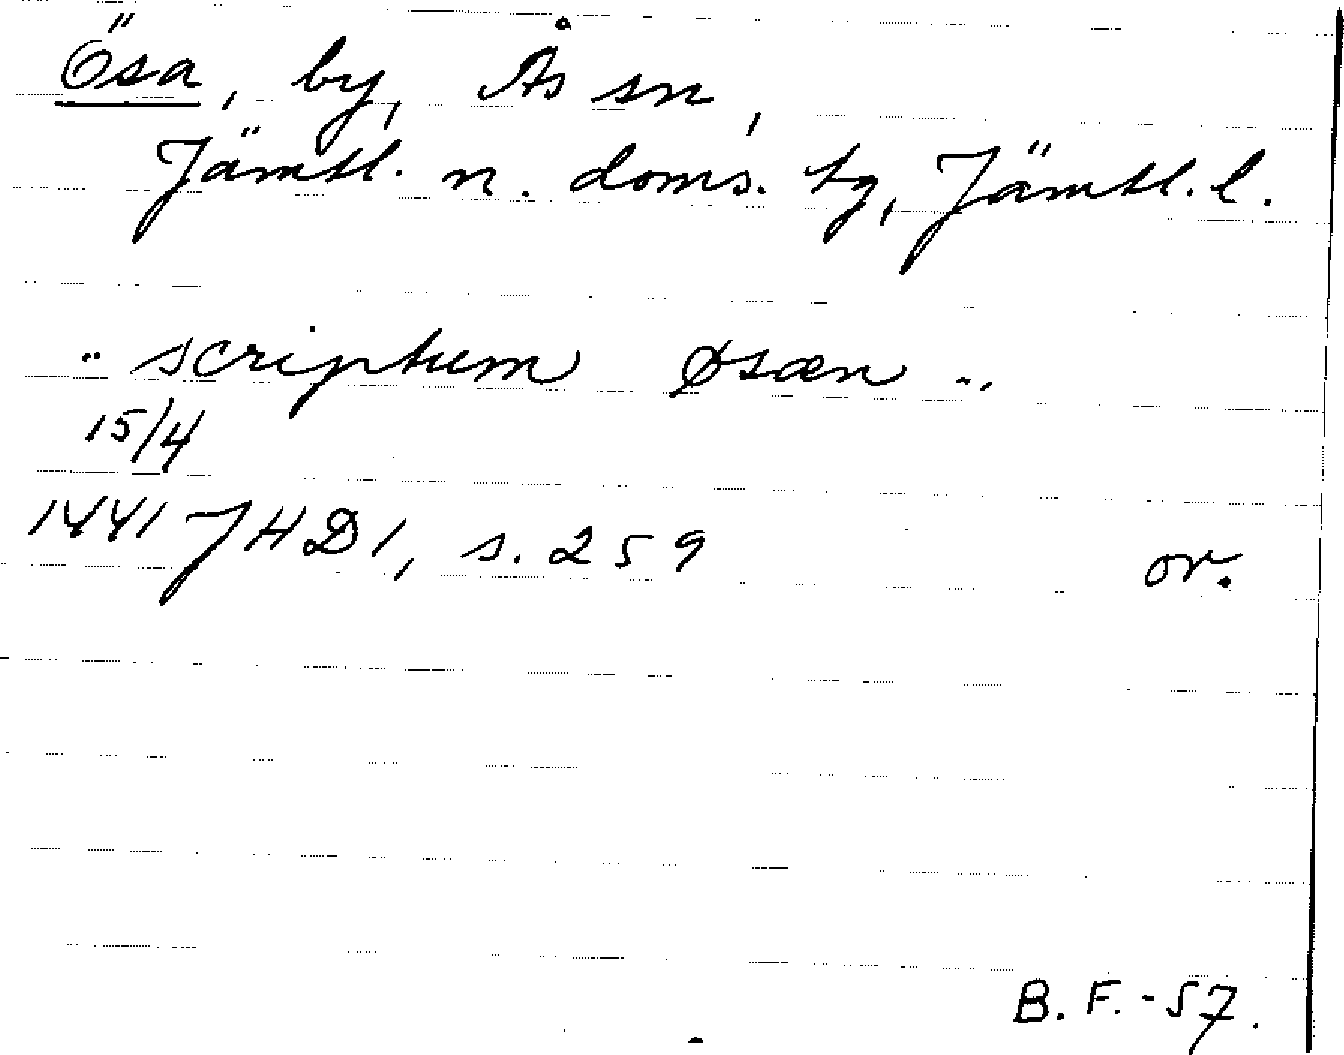 Ösa, by, Ås sn,
Jämtl. n. doms. tg, Jämtl. l.
.. scriptum Øsæn ..
15/4
1441 JHD 1, s. 259 or.
B. F. - 57.